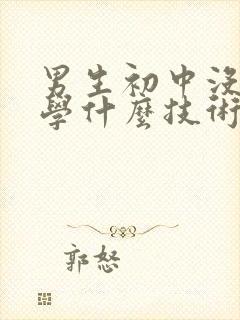 男生初中没
學什麼技術
郭怒